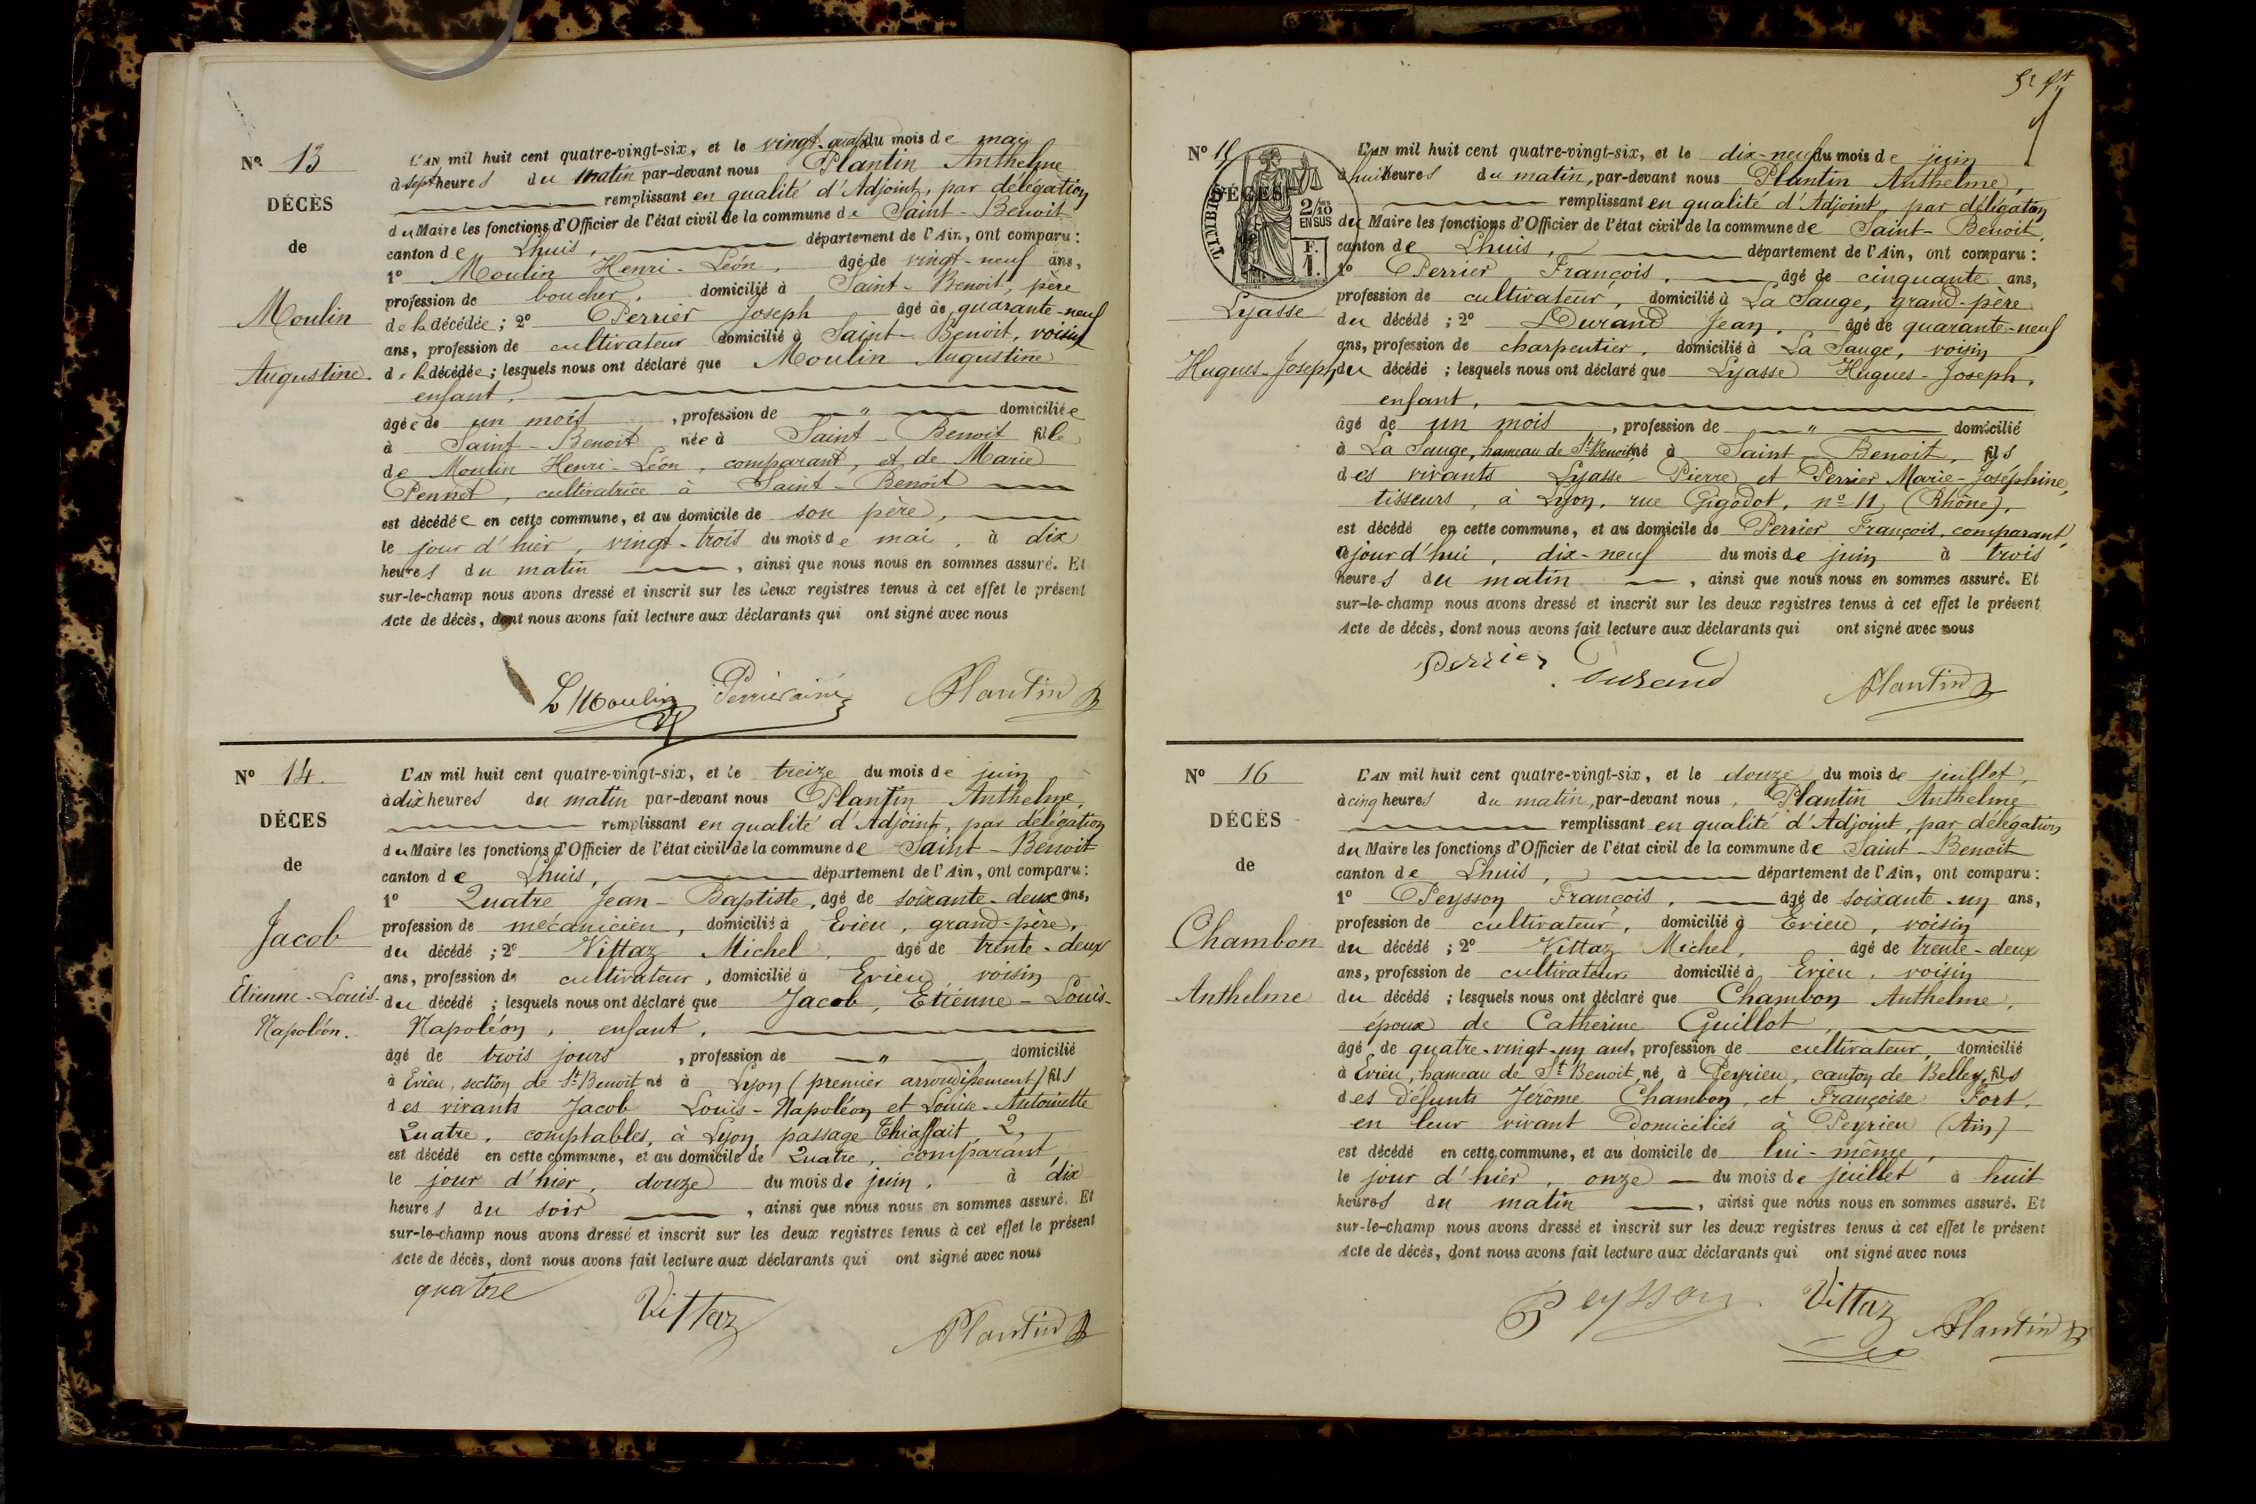 Nº 13
DÉCÈS
de
Moulin
Augustine.
L'AN mil huit cent quatre-vingt-six, et le vingt-quatre du mois de mai
à sept heures du matin par-devant nous Plantin Anthelme
remplissant en qualité d'Adjoint, par délégation
du Maire les fonctions d'Officier de l'état civil de la commune de Saint-Benoit
canton de Lhuis, département de l'Ain, ont comparu :
1º Moulin Henri-Léon, âgé de vingt-neuf ans,
profession de boucher, domicilié à Saint-Benoit, père
de la décédée ; 2º Perrier Joseph âgé de quarante-neuf
ans, profession de cultivateur domicilié à Saint-Benoit, voisin
de la décédée ; lesquels nous ont déclaré que Moulin Augustine
enfant,
âgée de un mois, profession de " domiciliée
à Saint-Benoit née à Saint-Benoit fille
de Moulin Henri-Léon, comparant, et de Marie
Pennet, cultivatrice à Saint-Benoit
est décédée en cette commune, et au domicile de son père,
le jour d'hier, vingt-trois du mois de mai, à dix
heures du matin, ainsi que nous nous en sommes assuré. Et
sur-le-champ nous avons dressé et inscrit sur les deux registres tenus à cet effet le présent
Acte de décès, dont nous avons fait lecture aux déclarants qui ont signé avec nous
L Moulin Perrier ainé Plantin
Nº 14.
DÉCÈS
de
Jacob
Etienne-Louis-
Napoléon.
L'AN mil huit cent quatre-vingt-six, et le treize du mois de juin
à dix heures du matin par-devant nous Plantin Anthelme,
remplissant en qualité d'Adjoint, par délégation
du Maire les fonctions d'Officier de l'état civil de la commune de Saint-Benoit
canton de Lhuis, département de l'Ain, ont comparu :
1º Quatre Jean-Baptiste, âgé de soixante-deux ans,
profession de mécanicien, domicilié à Evieu, grand-père,
du décédé ; 2º Vittaz Michel, âgé de trente-deux
ans, profession de cultivateur, domicilié à Evieu, voisin
du décédé ; lesquels nous ont déclaré que Jacob, Etienne-Louis-
Napoléon, enfant,
âgé de trois jours, profession de " domicilié
à Evieu, section de St Benoit né à Lyon (premier arrondissement) fils
des vivants Jacob Louis-Napoléon et Louise-Antoinette
Quatre, comptables, à Lyon, passage Thiaffait, 2,
est décédé en cette commune, et au domicile de Quatre, comparant,
le jour d'hier, douze du mois de juin, à dix
heures du soir, ainsi que nous nous en sommes assuré. Et
sur-le-champ nous avons dressé et inscrit sur les deux registres tenus à cet effet le présent
Acte de décès, dont nous avons fait lecture aux déclarants qui ont signé avec nous
quatre Vittaz Plantin
Nº 15
DÉCÈS
de
TIMBRE
2/10 EN SUS
F. 1.
Lyasse
Hugues-Joseph,
L'AN mil huit cent quatre-vingt-six, et le dix-neuf du mois de juin
à huit heures du matin, par-devant nous Plantin Anthelme,
remplissant en qualité d'Adjoint, par délégaton
du Maire les fonctions d'Officier de l'état civil de la commune de Saint-Benoit,
canton de Lhuis, département de l'Ain, ont comparu :
1º Perrier François, âgé de cinquante ans,
profession de cultivateur, domicilié à La Sauge, grand-père
du décédé ; 2º Durand Jean, âgé de quarante-neuf
ans, profession de charpentier, domicilié à La Sauge, voisin
du décédé ; lesquels nous ont déclaré que Lyasse Hugues-Joseph,
enfant,
âgé de un mois, profession de " domicilié
à La Sauge, hameau de St Benoit né à Saint-Benoit, fils
des vivants Lyasse Pierre et Perrier Marie-Joséphine,
tisseurs, à Lyon, rue Gigodot, nº 11 (Rhône),
est décédé en cette commune, et au domicile de Perrier François, comparant,
ce jour d'hui, dix-neuf du mois de juin à trois
heures du matin, ainsi que nous nous en sommes assuré. Et
sur-le-champ nous avons dressé et inscrit sur les deux registres tenus à cet effet le présent
Acte de décès, dont nous avons fait lecture aux déclarants qui ont signé avec nous
Perrier Durand Plantin
Nº 16
DÉCÈS
de
Chambon
Anthelme
L'AN mil huit cent quatre-vingt-six, et le douze du mois de juillet,
à cinq heures du matin, par-devant nous, Plantin Anthelme
remplissant en qualité d'Adjoint, par délégation
du Maire les fonctions d'Officier de l'état civil de la commune de Saint-Benoit
canton de Lhuis, département de l'Ain, ont comparu :
1º Peysson François, âgé de soixante-un ans,
profession de cultivateur, domicilié à Evieu, voisin
du décédé ; 2º Vittaz Michel, âgé de trente-deux
ans, profession de cultivateur, domicilié à Evieu, voisin
du décédé ; lesquels nous ont déclaré que Chambon Anthelme,
époux de Catherine Guillot,
âgé de quatre-vingt-un ans, profession de cultivateur, domicilié
à Evieu, hameau de St Benoit, né, à Peyrieu, canton de Belley, fils
des défunts Jérôme Chambon, et Françoise Fort,
en leur vivant domiciliés à Peyrieu (Ain)
est décédé en cette commune, et au domicile de lui-même,
le jour d'hier, onze du mois de juillet à huit
heures du matin, ainsi que nous nous en sommes assuré. Et
sur-le-champ nous avons dressé et inscrit sur les deux registres tenus à cet effet le présent
Acte de décès, dont nous avons fait lecture aux déclarants qui ont signé avec nous
Peysson Vittaz Plantin